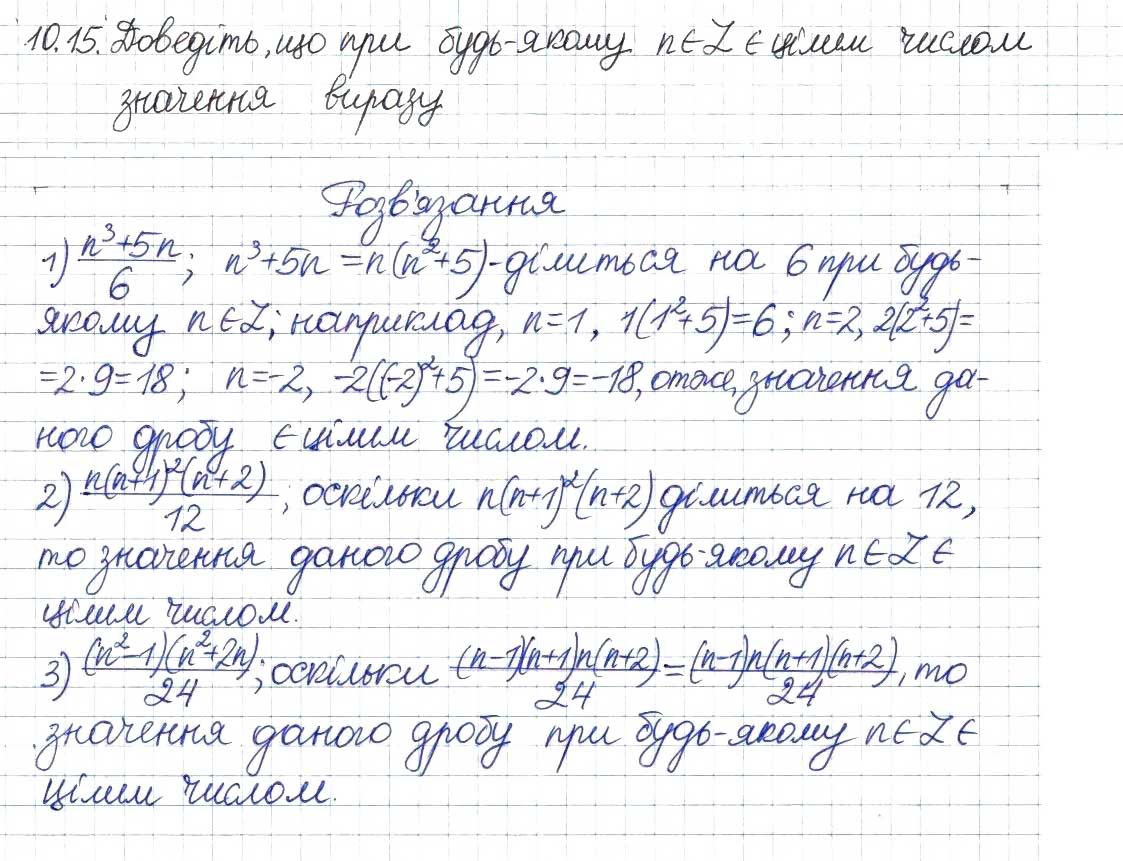 10.15. Доведіть, що при будь-якому n∈Z є цілим числом
значення виразу
Розв'язання
1) (n³+5n)/6; n³+5n=n(n²+5)-ділиться на 6 при будь-
якому n∈Z; наприклад, n=1, 1(1²+5)=6; n=2, 2(2²+5)=
=2·9=18; n=-2, -2((-2)²+5)=-2·9=-18, отже, значення да-
ного дробу є цілим числом.
2) n(n+1)²(n+2)/12; оскільки n(n+1)²(n+2) ділиться на 12,
то значення даного дробу при будь-якому n∈Z є
цілим числом.
3) (n²-1)(n²+2n)/24; оскільки (n-1)(n+1)n(n+2)/24=(n-1)n(n+1)(n+2)/24, то
значення даного дробу при будь-якому n∈Z є
цілим числом.